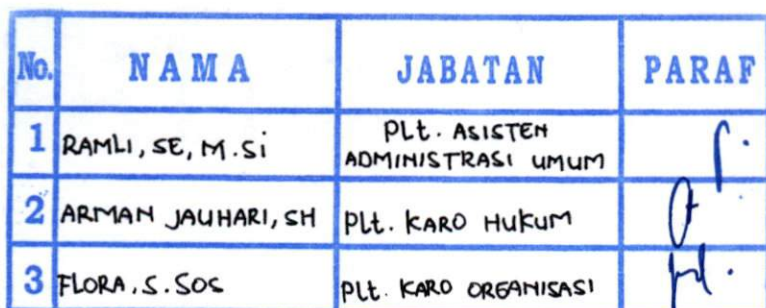 No. NAMA JABATAN PARAF
1 RAMLI, SE, M.Si PLt. ASISTEN
ADMINISTRASI UMUM
2 ARMAN JAUHARI, SH PLt. KARO HUKUM
3 FLORA. S. SOS PLt. KARO ORGANISASI